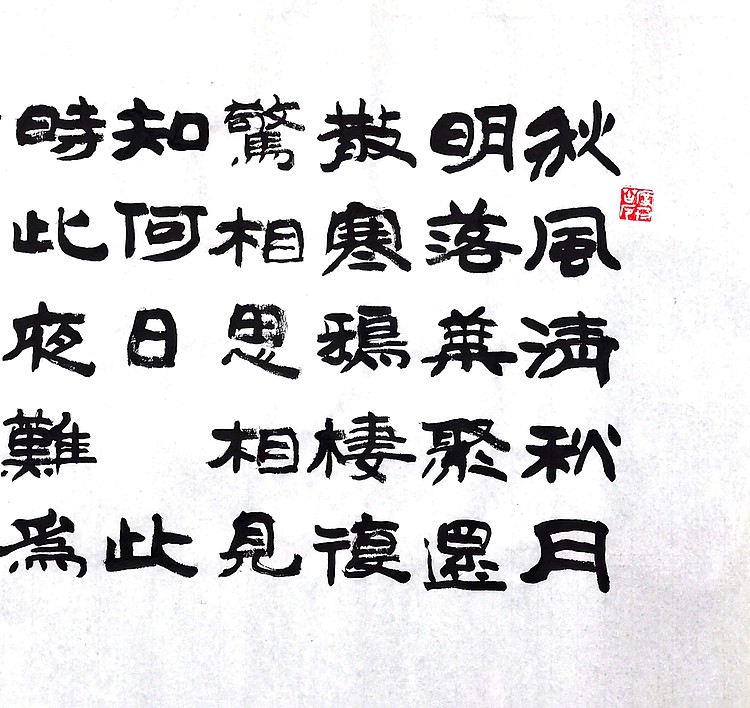 秋風清秋月
明落葉聚還
散寒鴉棲復
驚相思相見
知何日 此
時此夜難為